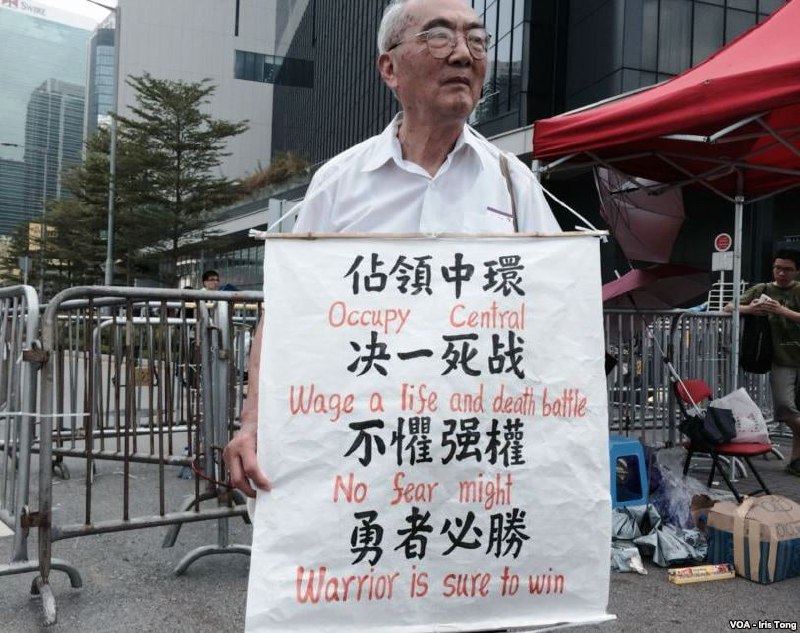 SWIRE
佔領中環
Occupy Central
决一死战
Wage a life and death battle
不懼强權
No fear might
勇者必勝
Warrior is sure to win
VOA - Iris Tong